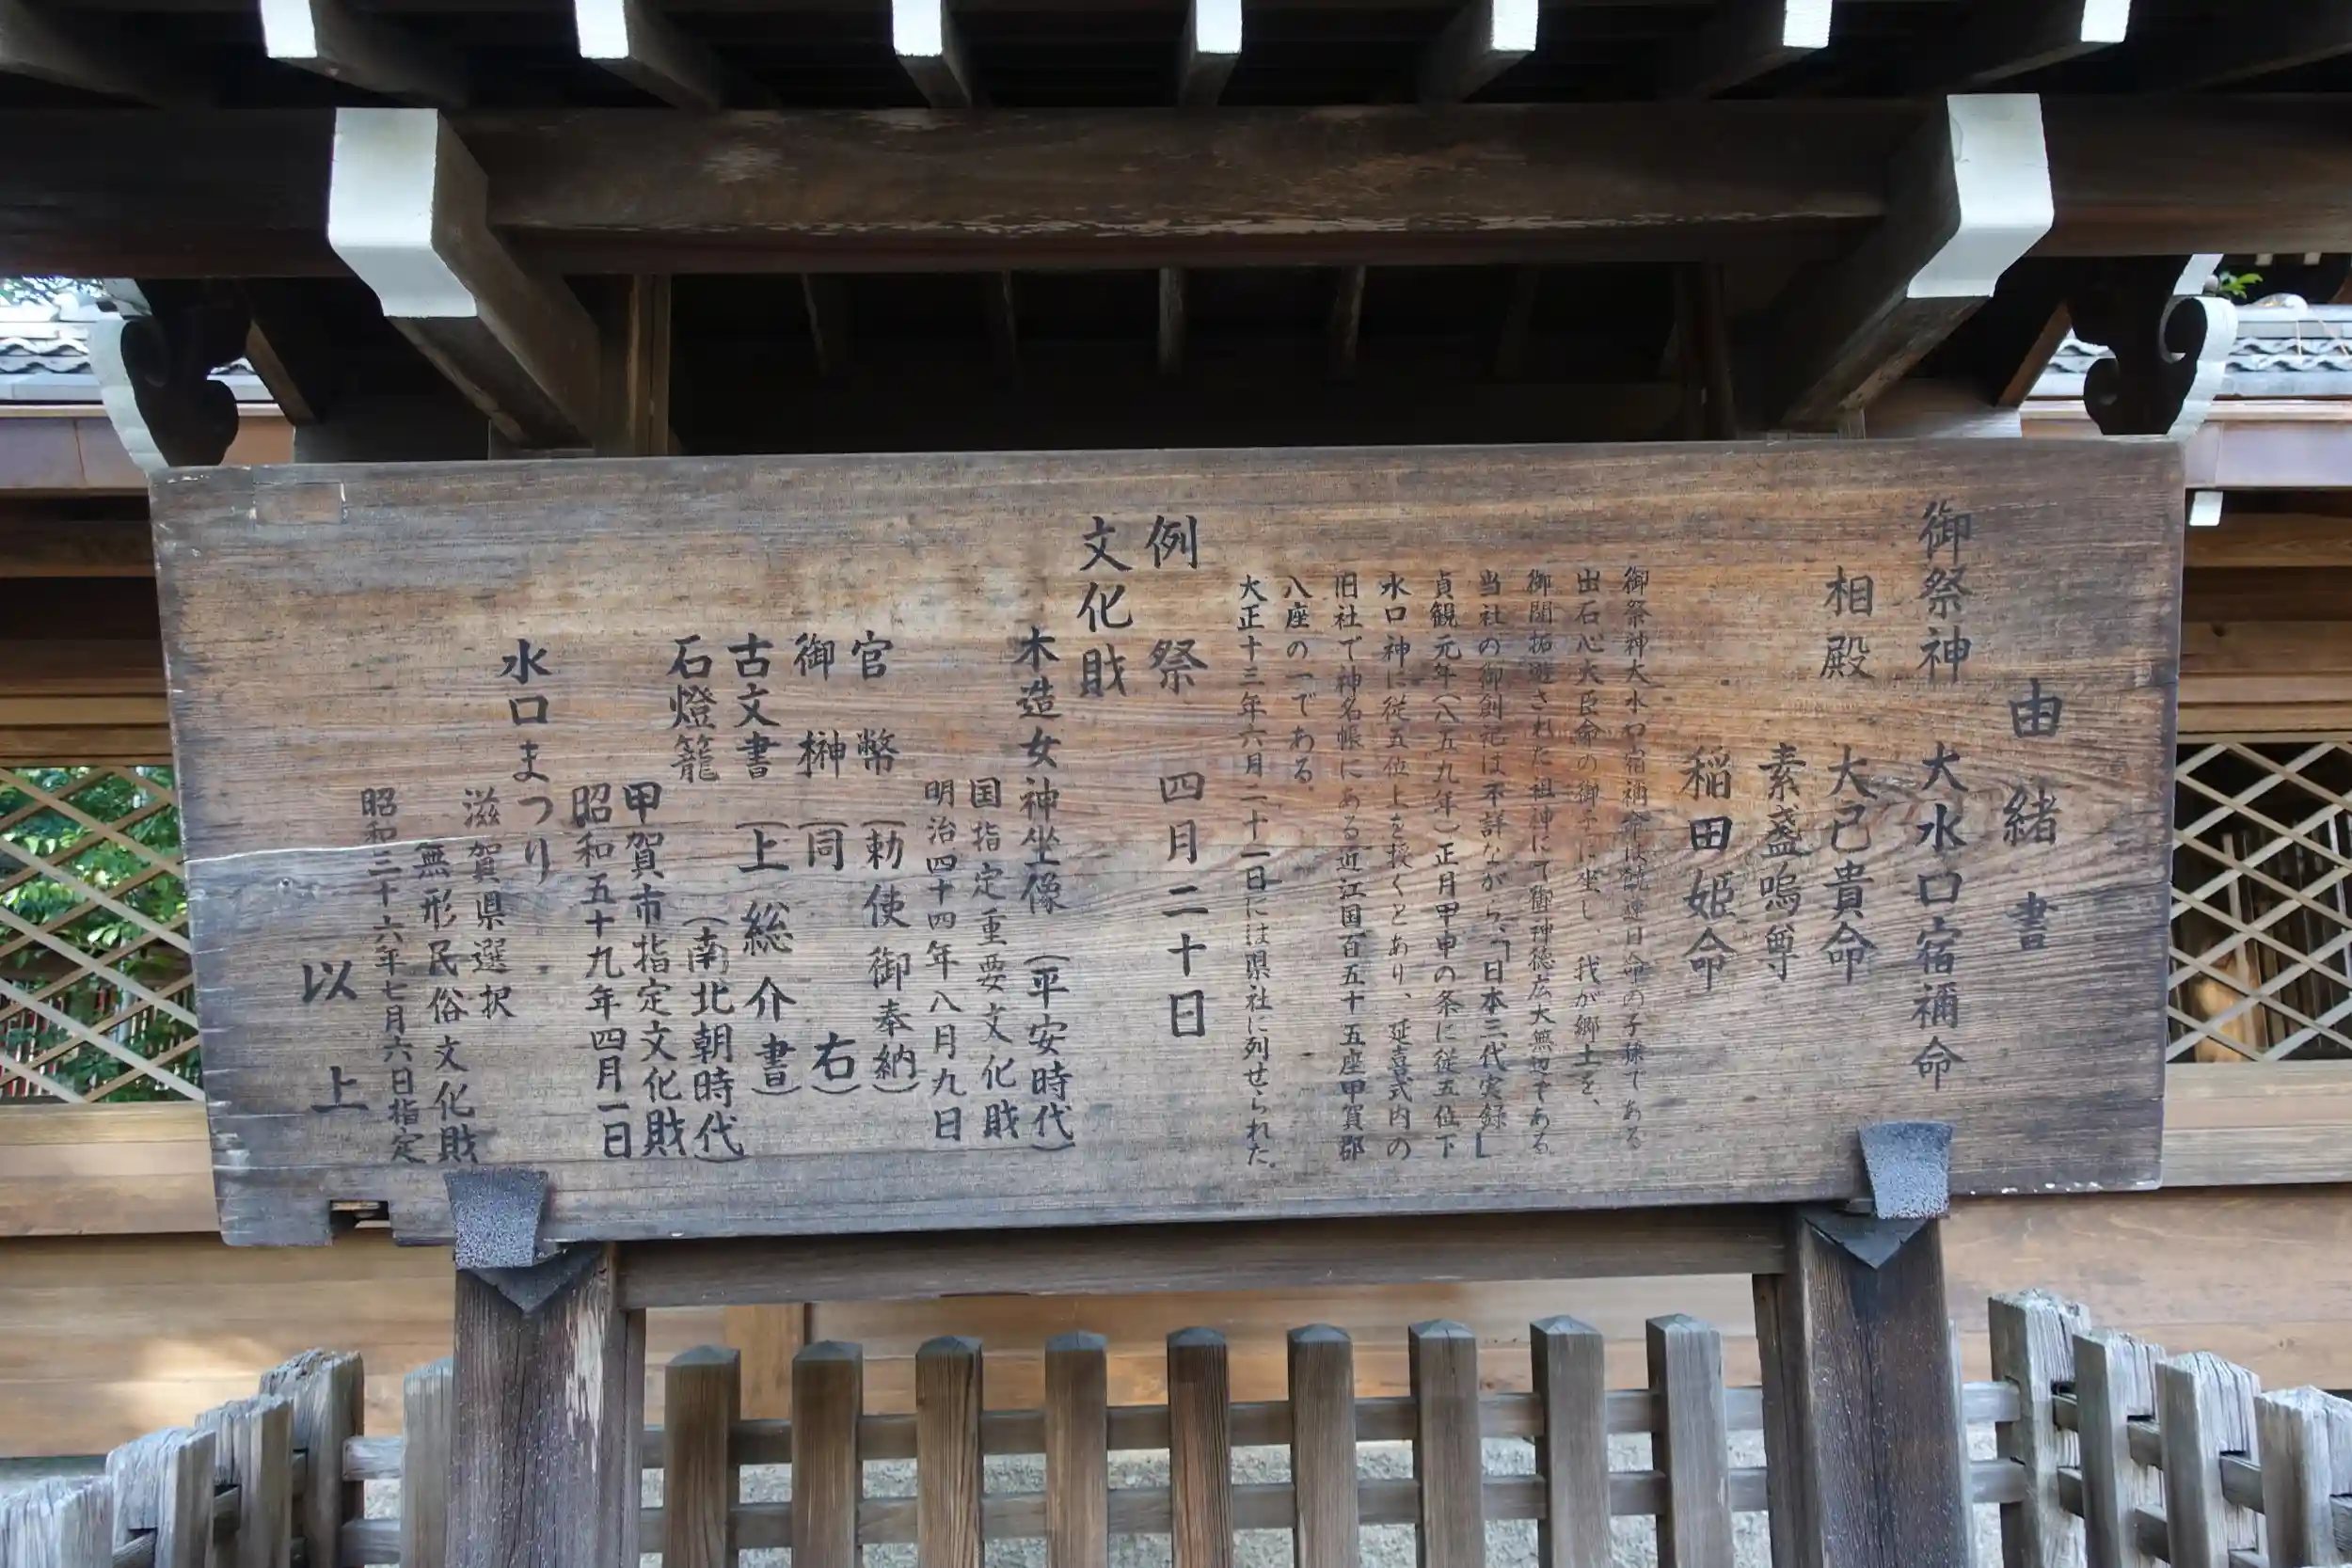 由緒書
御祭神 大水口宿禰命
相殿 大己貴命
素盞嗚尊
稲田姫命
御祭神大水口宿禰命は饒速日命の子孫である
出石心大臣命の御子に坐し、我が郷土を、
御開拓遊された祖神にて御神徳広大無辺である
当社の御創祀は不詳ながら、「日本三代実録」
貞観元年(八五九年)正月甲申の条に従五位下
水口神に従五位上を授くとあり、延喜式内の
旧社で神名帳にある近江国百五十五座甲賀郡
八座の一である。
大正十三年六月二十一日には県社に列せられた。
例祭 四月二十日
文化財
木造女神坐像(平安時代)
国指定重要文化財
明治四十四年八月九日
官幣(勅使御奉納)
御榊(同右)
古文書(上総介書)
石燈籠(南北朝時代)
甲賀市指定文化財
昭和五十九年四月一日
水口まつり
滋賀県選択
無形民俗文化財
昭和三十六年七月六日指定
以上